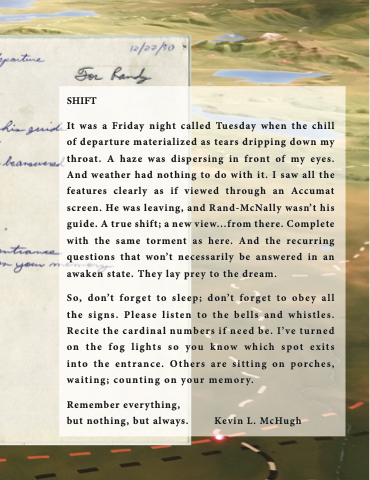 12/22/90
For Randy
parture
his guide
transversed
entrance
on your memory
SHIFT
It was a Friday night called Tuesday when the chill
of departure materialized as tears dripping down my
throat. A haze was dispersing in front of my eyes.
And weather had nothing to do with it. I saw all the
features clearly as if viewed through an Accumat
screen. He was leaving, and Rand-McNally wasn't his
guide. A true shift; a new view...from there. Complete
with the same torment as here. And the recurring
questions that won't necessarily be answered in an
awaken state. They lay prey to the dream.
So, don't forget to sleep; don't forget to obey all
the signs. Please listen to the bells and whistles.
Recite the cardinal numbers if need be. I've turned
on the fog lights so you know which spot exits
into the entrance. Others are sitting on porches,
waiting; counting on your memory.
Remember everything,
but nothing, but always. Kevin L. McHugh